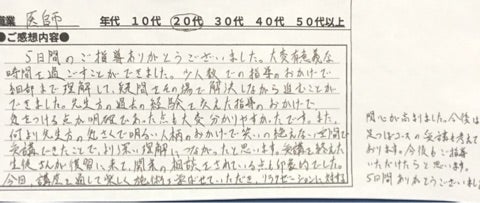 職業 医師 年代 10代 20代 30代 40代 50代以上
●ご感想内容●
5日間のご指導ありがとうございました。大変有意義な
時間を過ごすことができました。少人数での指導のおかげで
細部まで理解して、疑問をその場で解決しながら進むことが
できました。先生方の過去の経験を交えた指導のおかげで、
気をつける点が明確であった点も大変分かりやすかったです。また、
何より先生方の気さくで明るい人柄のおかげで笑いの絶えない空間で
受講できたことで、より深い理解につながったと思います。受講を終えた
生徒さんが復習に来て、開業の相談をされている点も印象的でした。
今回、講座を通して楽しく施術を学ばせていただき、リラクゼーションに対する
関心が高まりました。今後は
足つぼコースの受講も考えて
おります。今後もご指導
いただけたらと思います。
5日間ありがとうございました